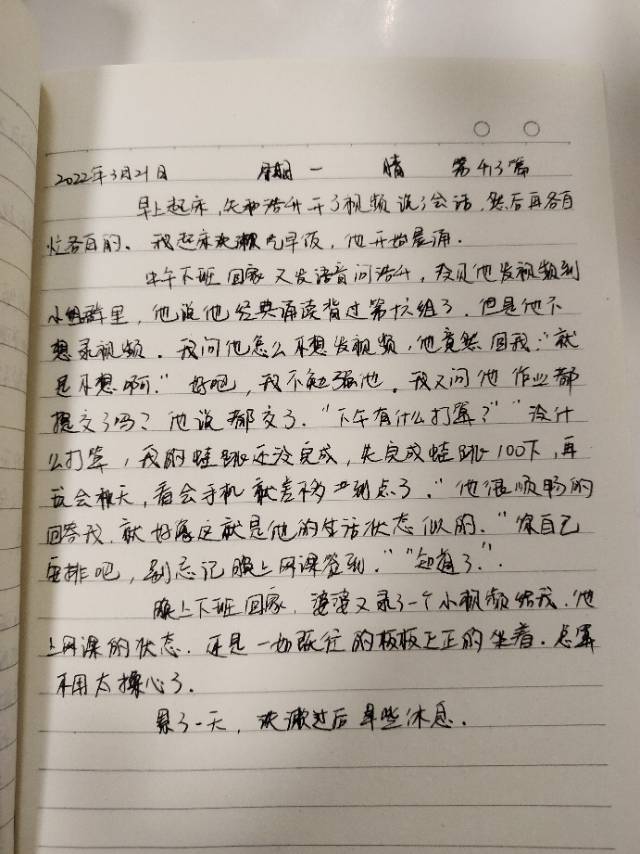 2022年3月21日 星期一 晴 第413篇
早上起床,先和浩升开了视频说了会话,然后再各自
忙各自的。我起床洗漱吃早饭,他开始晨诵。
中午下班回家又发语音问浩升,没见他发视频到
小组群里,他说他经典诵读背过第十六组了。但是他不
想录视频。我问他怎么不想发视频,他竟然回我:"就
是不想啊。"好吧,我不勉强他。我又问他作业都
提交了吗?他说都交了。"下午有什么打算?""没什
么打算,我的蛙跳还没完成,先完成蛙跳100下,再
玩会 ,看会手机就差不多 到点了。"他很顺畅的
回答我,就好像这就是他的生活状态似的。"你自己
安排吧,别忘记晚上网课签到。""知道了。".
晚上下班回家,婆婆又录了一个小视频给我,他
上网课的状态。还是一如既往的板板正正的坐着。总算
不用太操心了。
累了一天,洗漱过后早些休息。